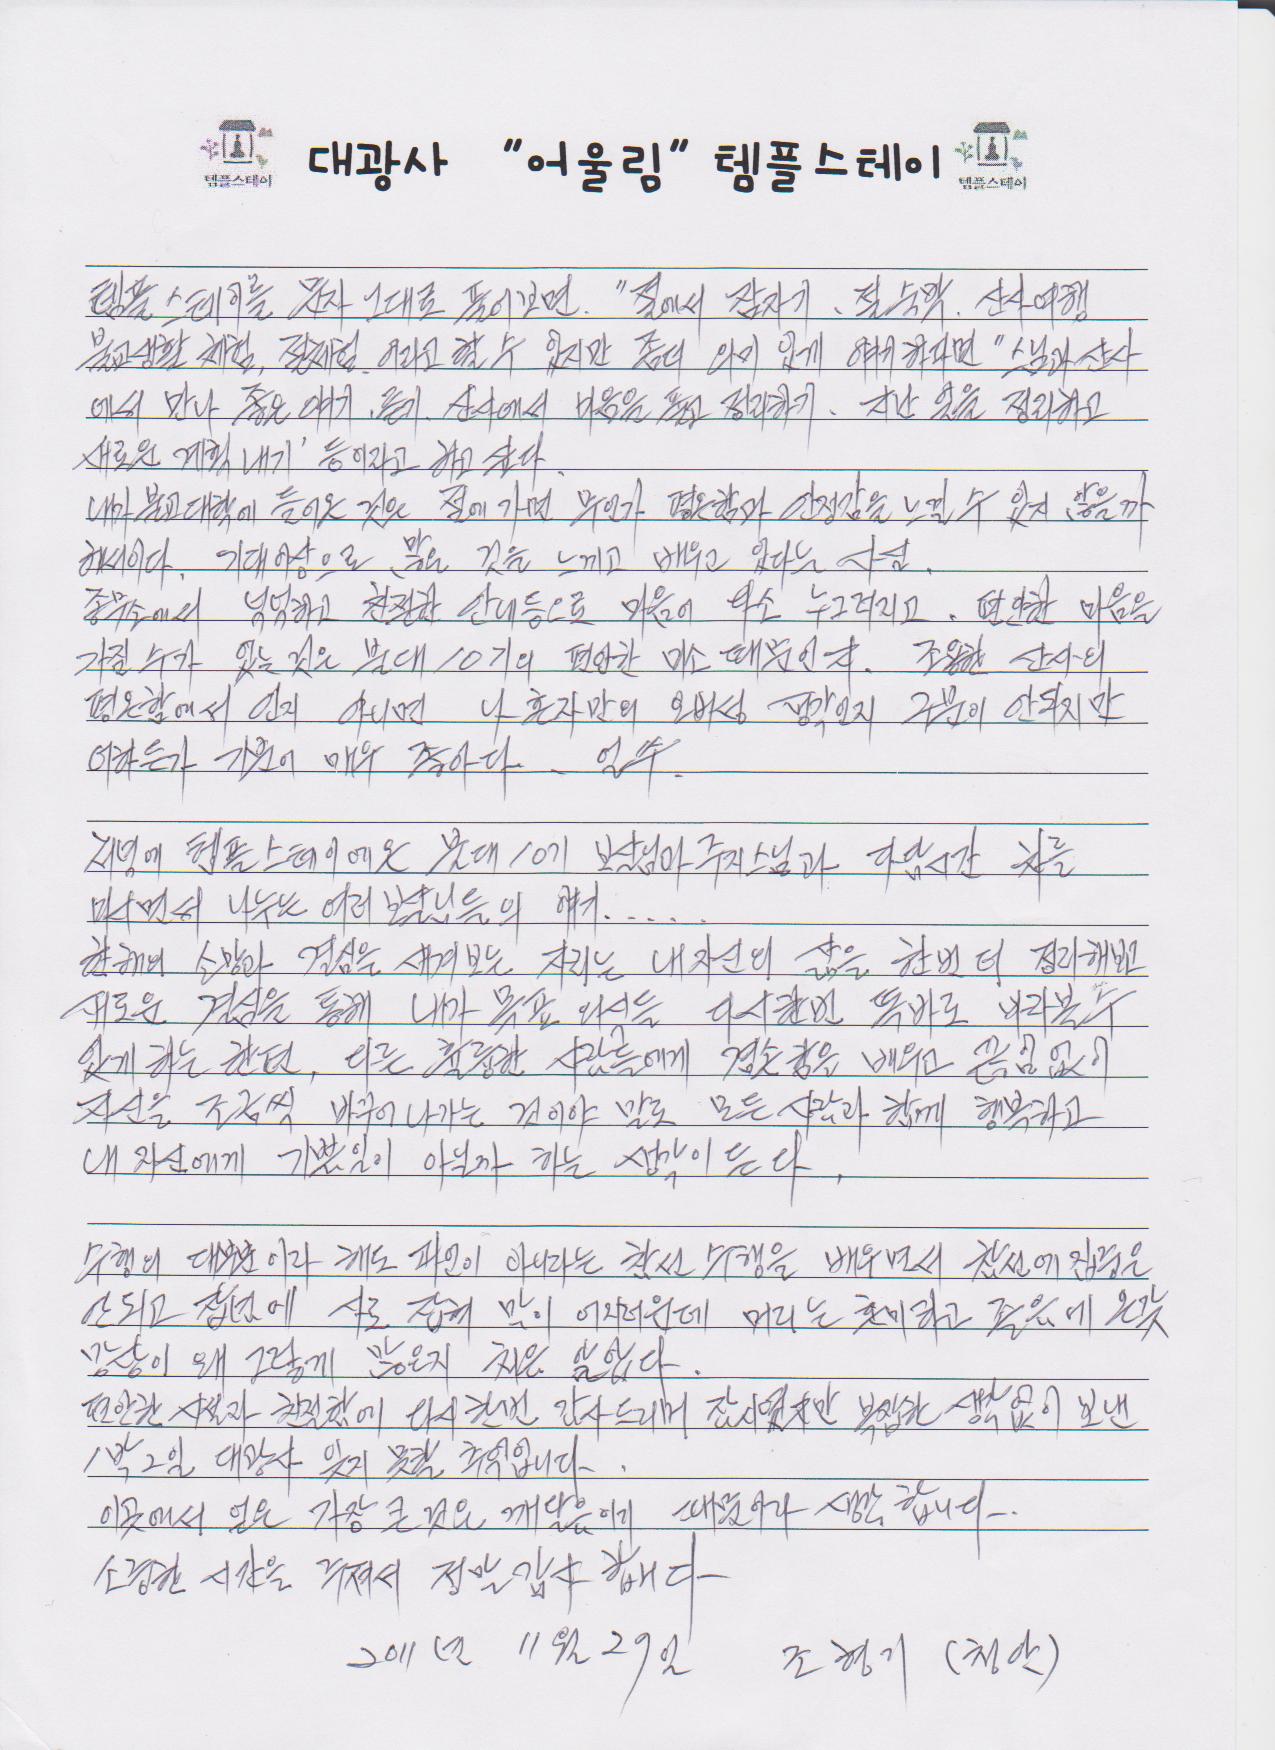 템플스테이
대광사 "어울림" 템플스테이
템플스테이
템플스테이를 문자 그대로 풀어보면. "절에서 잠자기. 절 숙박. 산사여행
불교생활 체험, 절체험. 이라고 할 수 있지만 좀더 의미 있게 얘기하라면 "스님과 산사
에서 만나 좋은 얘기 듣기. 산사에서 마음을 풀고 정리하기. 지난 일을 정리하고
새로운 계획 내기' 등이라고 하고 싶다.
내가 불교대학에 들어온 것은 절에 가면 무언가 평온함과 안정감을 느낄 수 있지 않을까
해서이다. 기대이상으로 많은 것을 느끼고 배우고 있다는 사실.
종무소에서 넉넉하고 친절한 안내등으로 마음이 다소 누그러지고. 편안한 마음을
가질 수가 있는 것은 불대 10기의 편안한 미소 때문인가. 조용한 산사의
평온함에서 인지 아니면 나 혼자만의 오바성 생각인지 구분이 안되지만
여하튼가 기분이 매우 좋아다.
저녁에 템플스테이에온 불대 10기 보살님과 주지스님과 다담시간 차를
마시면서 나누는 여러 보살님들의 얘기......
한해의 소망과 결심을 새겨보는 자리는 내 자신의 삶을 한번 더 정리해보고
새로운 결심을 통해 내가 목표 의식을 다시한번 똑바로 바라볼 수
있게 하는 한편, 다른 훌륭한 사람들에게 겸손함을 배우고 끊임없이
자신을 조금씩 바꾸어 나가는 것이야 말로 모든 사람과 함께 행복하고
내 자신에게 기쁜일이 아닐까 하는 생각이 든다.
수행의 대부분 이라 해도 과언이 아니라는 참선 수행을 배우면서 참선에 집중은
안되고 잡념에 사로 잡혀 막이 어지러운데 머리는 혼미하고 졸음에 온갖
망상이 왜 그렇게 많은지 처음 알았다.
편안한 시설과 친절함에 다시한번 감사드리며 잠시였지만 복잡한 생각없이 보낸
1박2일 대광사 잊지 못할 추억입니다.
이곳에서 얻은 가장 큰것은 깨달음이기 때문이라 생각합니다.
소중한 시간을 주셔서 정말 감사 합니다
2011년 11월 29일 조형기 (천안)